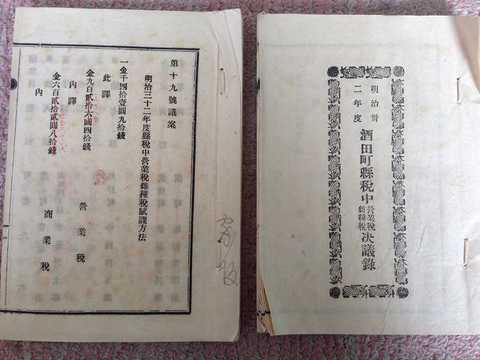 明治卅
二年度
酒田町縣稅中營業稅雜種稅决議錄
第十九號議案
明治三十二年度縣稅中營業稅雜種稅賦課方法
一金千四拾壹圓九拾錢
此譯
金九百貳拾六圓四拾錢
營業稅
內譯
金六百貳拾貳圓八拾錢
商業稅
內